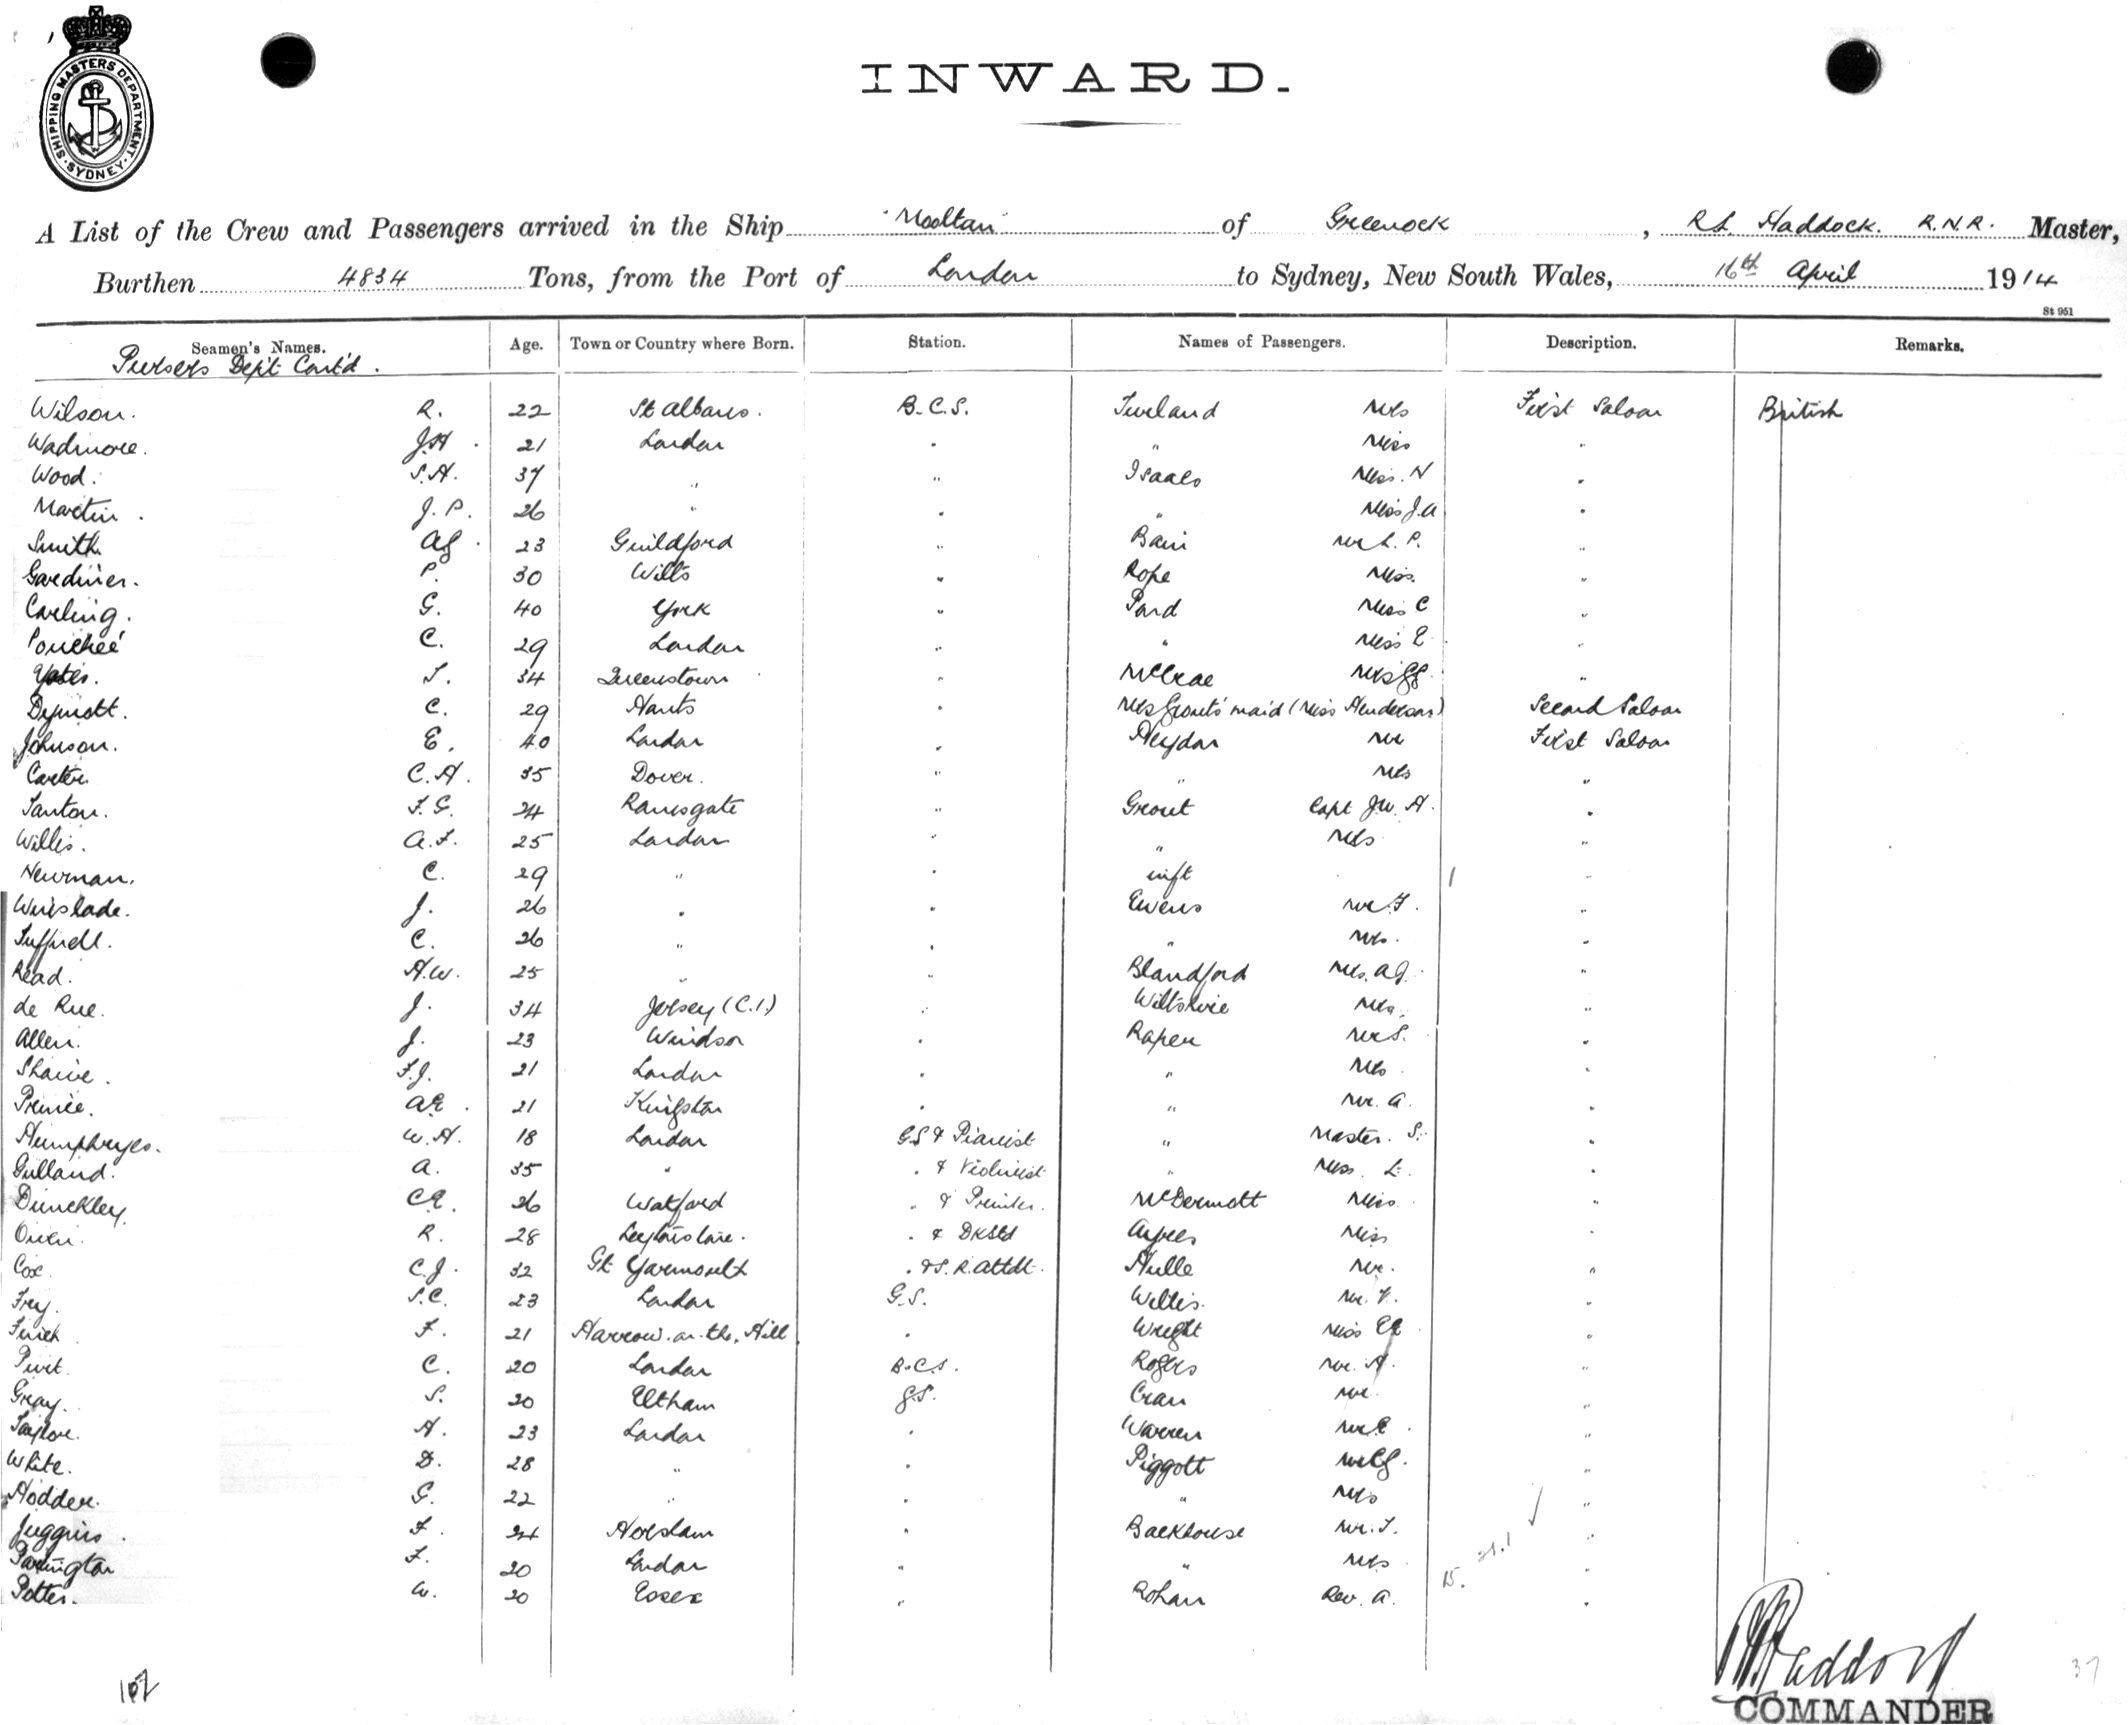 SHIPPING MASTERS DEPARTMENT. SYDNEY
INWARD.
A List of the Crew and Passengers arrived in the Ship "Mooltan" of Greenock, R.L. Haddock. R.N.R. Master,
Burthen 4834 Tons, from the Port of London to Sydney, New South Wales, 16th April 1914
St 951
Seamen's Names. Age. Town or Country where Born. Station. Names of Passengers. Description. Remarks.
Pursers Dept Cont'd.
Wilson. R. 22 St Albans. B.C.S. Mrs First Saloon British
Wadmore. J.H. 21 London . " Miss "
Wood. S.A. 37 " " Isaacs Miss. N "
Martin. J.P. 26 " " " Miss J.A "
Smith. 23 Guildford " Bain Mr L.P. "
Gardiner. P. 30 Wilts " Rope Miss. "
Carling. G. 40 York " Miss C "
Pouchée C. 29 London " " Miss E "
Yates. 34 Queenstown " McCrae "
C. 29 Hants " Mrs Grout's maid (Miss Henderson) Second Saloon
Johnson. E. 40 London " Heydon Mr First Saloon
Carter C.H. 35 Dover. " " Mrs "
F.G. 24 Ramsgate " Grout Capt J.W.H. "
Willis. A.F. 25 London " " Mrs "
Newman. C. 29 " " inft 1 "
Winslade. J. 26 " " Ewens Mr F. "
Tuffnell. C. 26 " " " Mrs. "
Read. A.W. 25 " " Blandford "
de Rue. J. 34 Jersey (C.I.) " Wiltshire "
Allen. J. 23 Windsor " Raper Mr S. "
F.J. 21 London " " Mrs "
Prince. A.E. 21 Kingston " " Mr. A. "
Humphryes. W.H. 18 London G.S & Pianist " Master. S. "
Gulland. A. 35 " " & Violinist " Miss. L. "
Dunckley. C.E. 26 Watford " & Printer. McDermott Miss "
Owen. R. 28 Leytonstone. " & Dk Std Ayres Miss "
Cox C.J. 32 Gt Yarmouth " & S.R. Attdt. Hulle Mr. "
Frey. S.C. 23 London G.S. Willis. "
Finch F. 21 Harrow.on.the.Hill " Wright Miss "
C. 20 London B.C.S. Rogers Mr. A. "
Gray. S. 20 Eltham G.S. Cran Mr. "
Taylor. A. 23 London " Warren "
White. D. 28 " " Piggott "
Hodder. G. 22 " " " Mrs "
Juggins. F. 24 Horsham " Backhouse Mr. T. "
Partington F. 20 London " " Mrs "
Potter. W. 20 Essex " Rohan Rev. A. "
COMMANDER
37